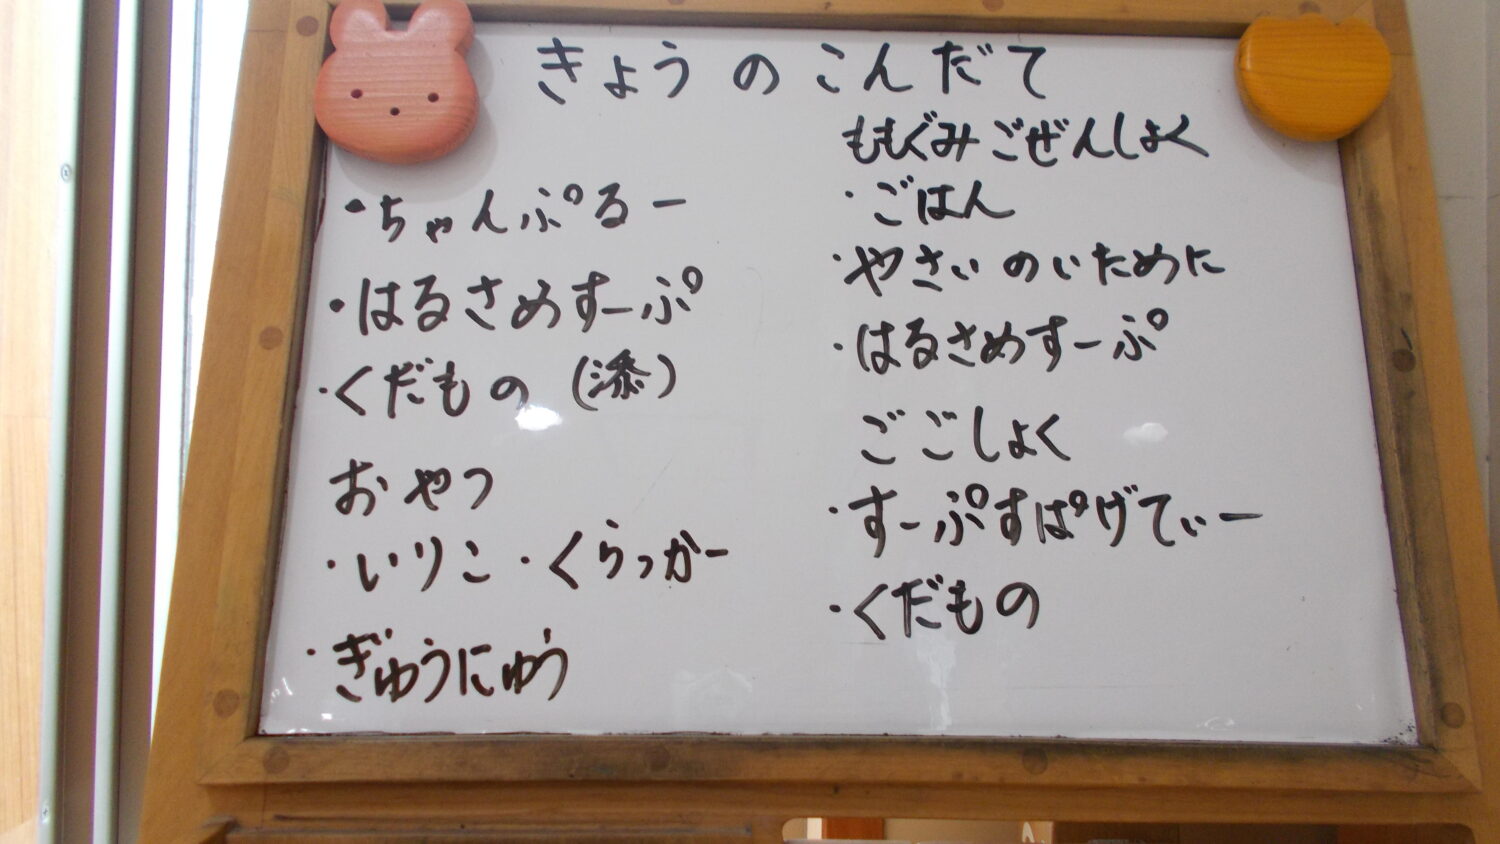 きょうのこんだて
・ちゃんぷるー
・はるさめすーぷ
・くだもの (添)
おやつ
・いりこ・くらっかー
・ぎゅうにゅう
ももぐみごぜんしょく
・ごはん
・やさいのいために
・はるさめすーぷ
ごごしょく
・すーぷすぱげてぃー
・くだもの